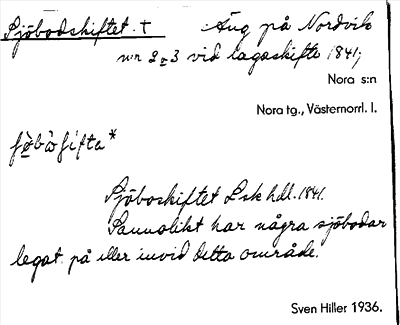 Sjöbodskiftet. † Äng på Nordvik
nr 2 o 3 vid lagaskifte 1841;
Nora s:n
Nora tg., Västernorrl. l.
Sjöboskiftet Lsk hdl. 1841.
Sannolikt har några sjöbodar
legat på eller invid detta område.
Sven Hiller 1936.